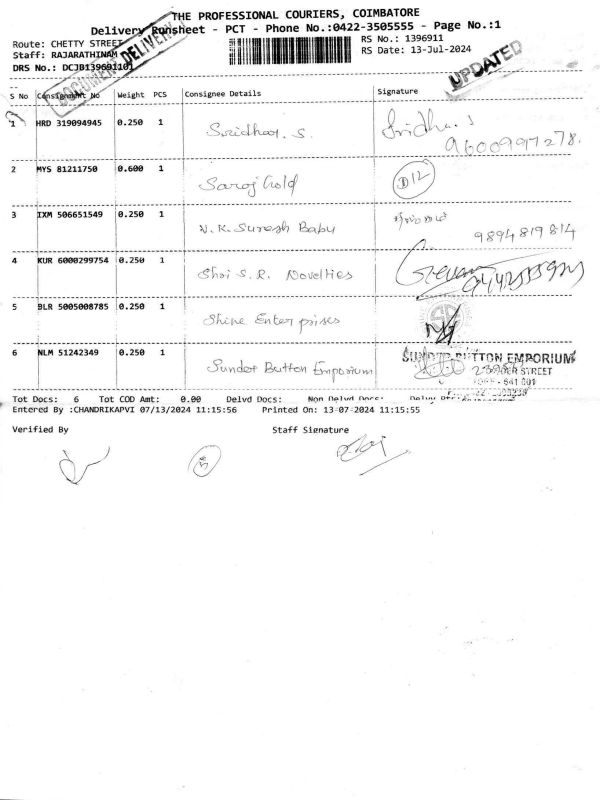 THE PROFESSIONAL COURIERS, COIMBATORE
Delivery Runsheet - PCT - Phone No.:0422-3505555 - Page No.:1
Route: CHETTY STREET
RS No.: 1396911
Staff: RAJARATHINAM
RS Date: 13-Jul-2024
DRS No.: DCJB1396911101
DOCUMENT DELIVERY
UPDATED
S No Consignment No Weight PCS Consignee Details Signature
1 HRD 319094945 0.250 1 Sridhar. S. Sridhar. S
9600997278.
2 MYS 81211750 0.600 1 Saroj Gold D12
3 IXM 506651549 0.250 1 N. K. Suresh Babu
9894819814
4 KUR 6000299754 0.250 1 Shri S.R. Novelties
5 BLR 5005008785 0.250 1 Shine Enterprises
6 NLM 51242349 0.250 1 Sunder Button Emporium SUNDER BUTTON EMPORIUM
STREET
641 001
Tot Docs: 6 Tot COD Amt: 0.00 Delvd Docs: Non Delvd Docs:
Entered By :CHANDRIKAPVI 07/13/2024 11:15:56 Printed On: 13-07-2024 11:15:55
Verified By Staff Signature